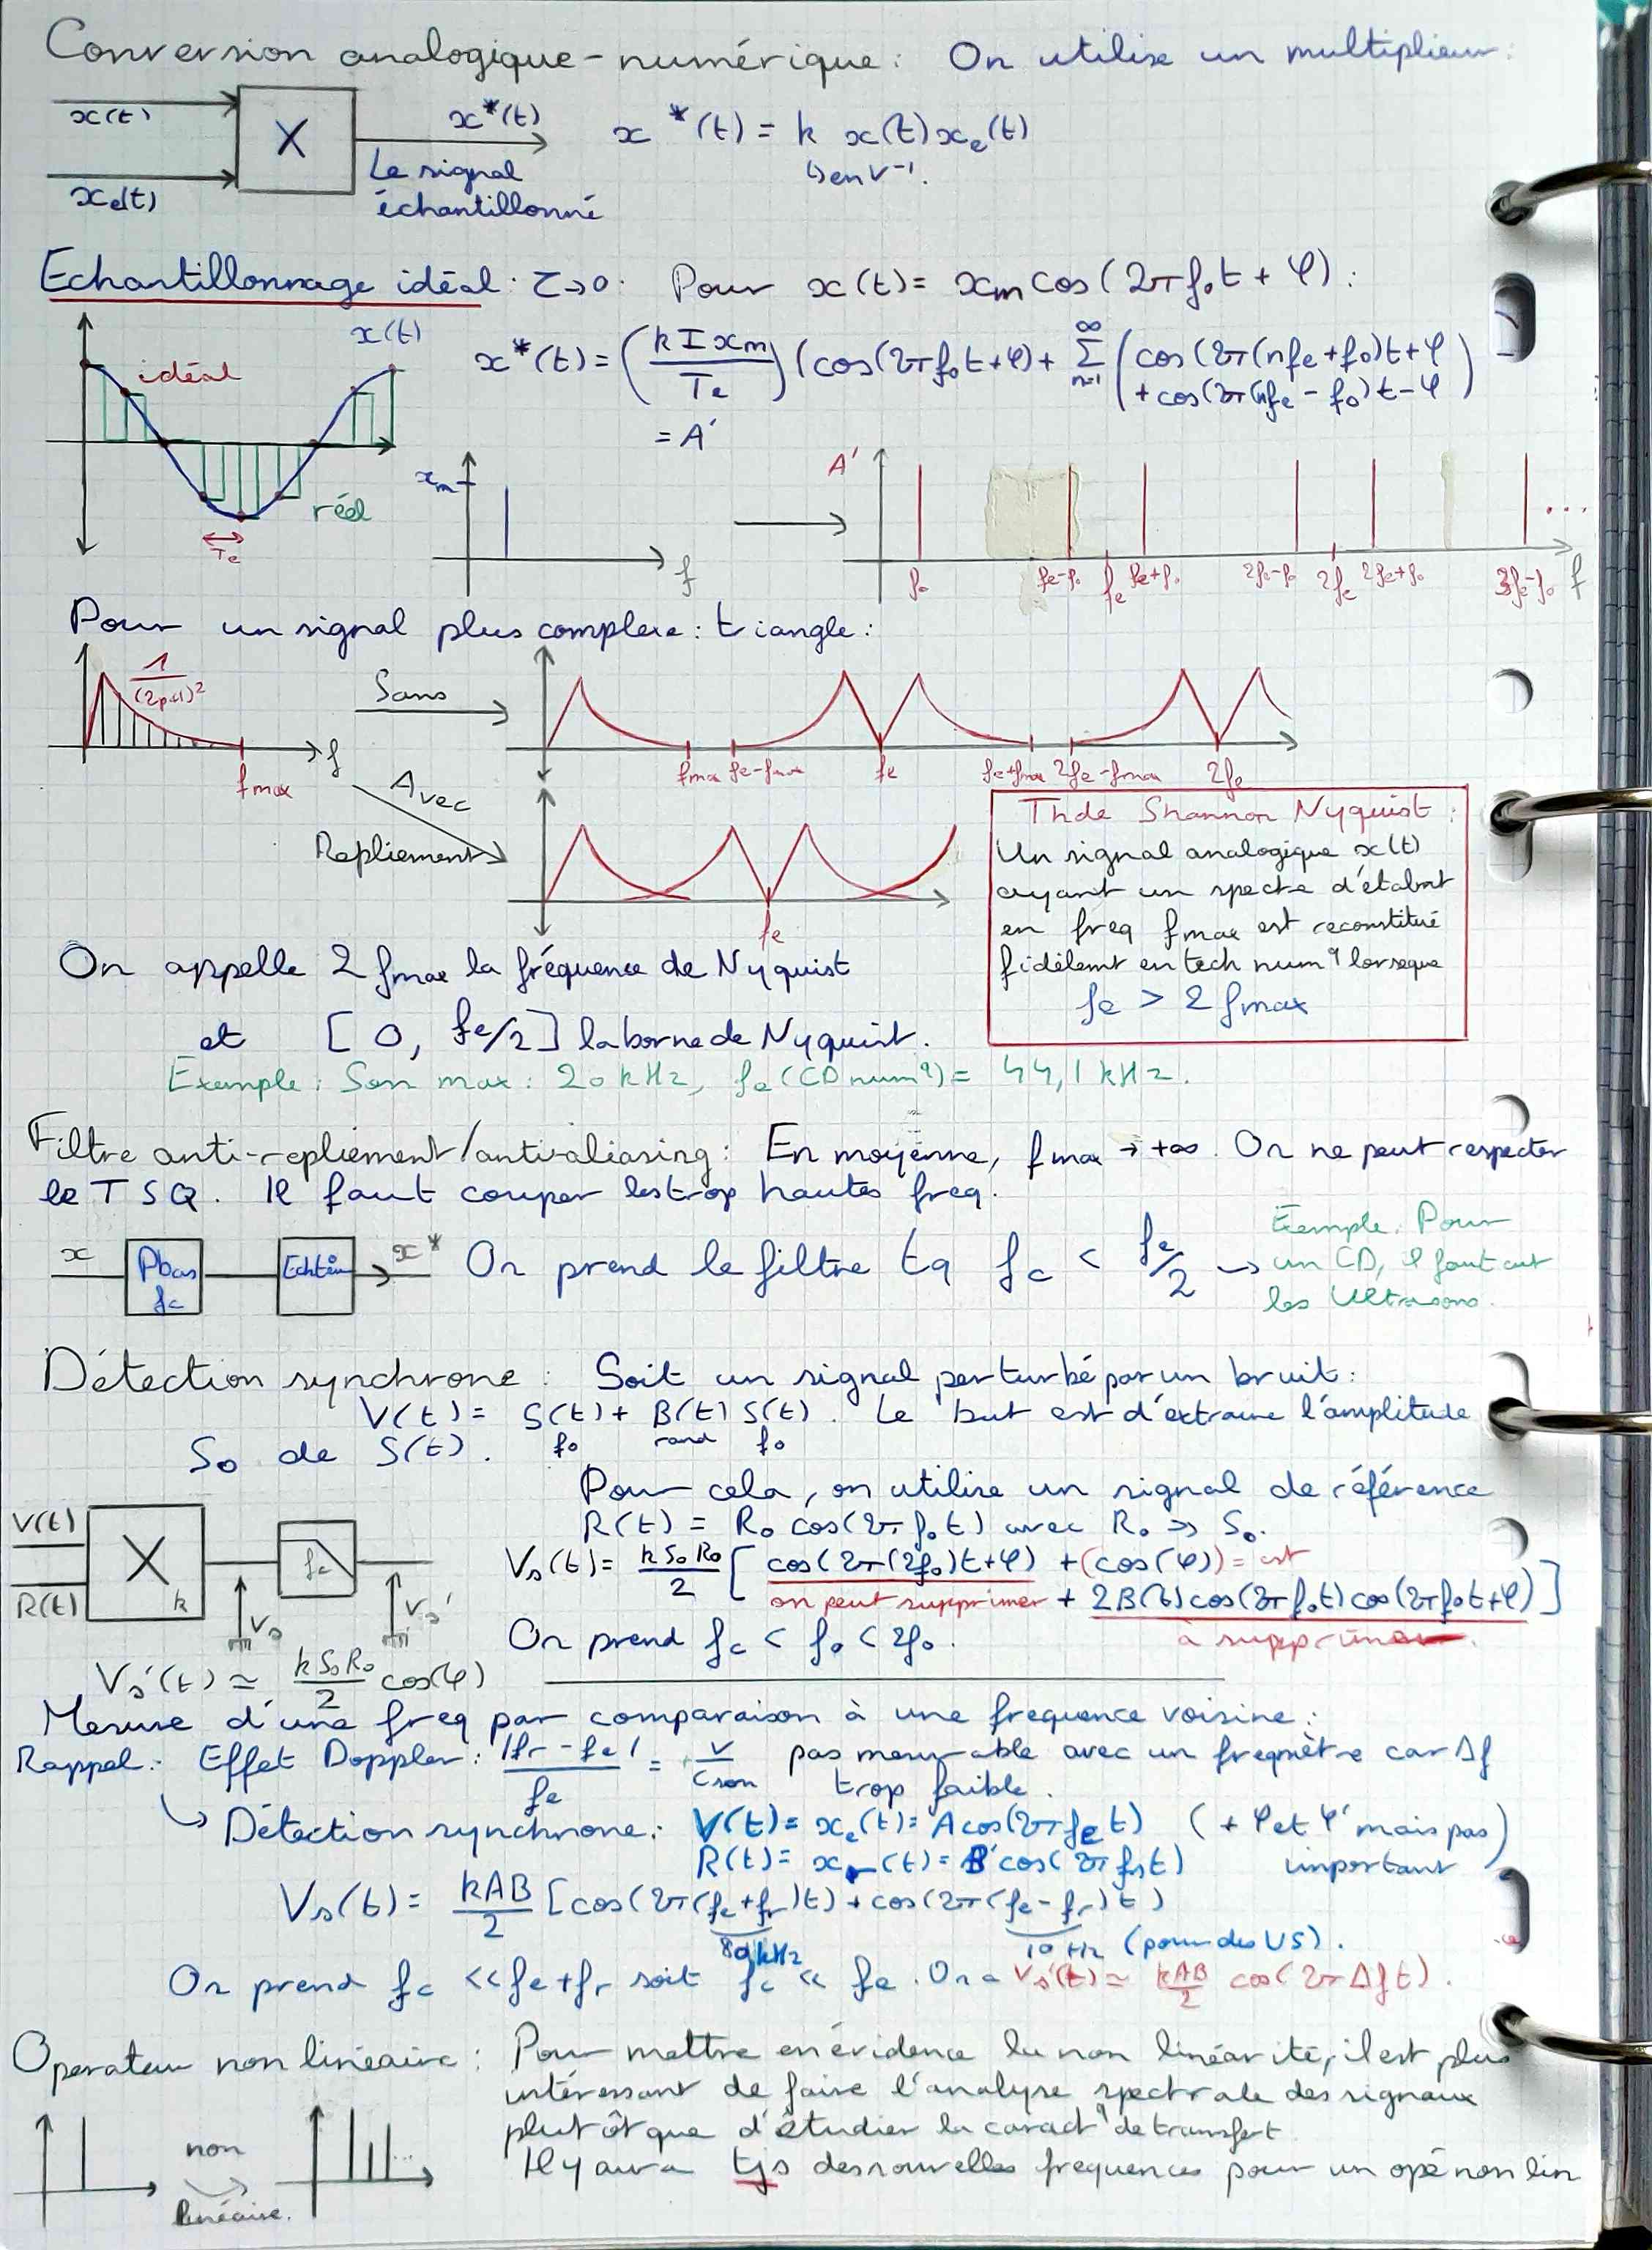 Conversion analogique-numérique : On utilise un multiplieur :
x(t)
xe(t)
X
x*(t)
Le signal
échantillonné
x*(t) = k x(t) xe(t)
↳ en V⁻¹.
Echantillonnage idéal : τ→0. Pour x(t) = xm cos(2πf₀t + φ) :
x(t)
idéal
réel
Te
x*(t) = (k I xm / Te) (cos(2πf₀t+φ) + Σ n=1 ∞ (cos(2π(nfe+f₀)t+φ
+ cos(2π(nfe - f₀)t-φ)
= A'
xm
f
A'
f₀ fe-f₀ fe fe+f₀ 2fe-f₀ 2fe 2fe+f₀ 3fe-f₀ ... f
Pour un signal plus complexe : triangle :
1/(2p+1)²
fmax
f
Sans
fmax fe-fmax fe fe+fmax 2fe-fmax 2fe
Avec
Repliement
fe
Th de Shannon Nyquist :
Un signal analogique x(t)
ayant un spectre d'étalmt
en freq fmax est reconstitué
fidèlemt en tech numq lorsque
fe > 2 fmax
On appelle 2 fmax la fréquence de Nyquist
et [0, fe/2] la borne de Nyquist.
Exemple : Son max : 20 kHz, fe (CD numq) = 44,1 kHz.
Filtre anti-repliement/antialiasing : En moyenne, fmax → +∞. On ne peut respecter
le TSQ. Il faut couper les trop hautes freq.
x
Pbas
fc
Echtön
x*
On prend le filtre tq fc < fe/2 →
Exemple. Pour
un CD, il faut cut
les Ultrasons.
Détection synchrone : Soit un signal perturbé par un bruit :
V(t) = S(t) + B(t) S(t). Le but est d'extraire l'amplitude
f₀ rand f₀
S₀ de S(t).
Pour cela, on utilise un signal de référence
R(t) = R₀ cos(2πf₀t) avec R₀ >> S₀.
V(t)
R(t)
X
k
fc
Vs
Vs'
Vs(t) = k S₀ R₀ / 2 [cos(2π(2f₀)t+φ) + (cos(φ)) = cst
on peut supprimer + 2B(t) cos(2πf₀t) cos(2πf₀t+φ)]
à supprimer.
On prend fc < f₀ < 2f₀.
Vs'(t) ≃ k S₀ R₀ / 2 cos(φ)
Mesure d'une freq par comparaison à une frequence voisine :
Rappel : Effet Doppler : |fr - fe| / fe = v / cson pas mesurable avec un freqmètre car Δf
trop faible.
↳ Détection synchrone : V(t) = xe(t) = A cos(2πfet) (+ φ et φ' mais pas
R(t) = xr(t) = B cos(2πfrt) important)
Vs(t) = kAB / 2 [cos(2π(fe+fr)t) + cos(2π(fe-fr)t)
80 kHz
10 Hz (pour des US).
On prend fc << fe+fr soit fc << fe. On a Vs'(t) ≃ kAB/2 cos(2πΔft).
Operateur non linéaire : Pour mettre en évidence la non linéarité, il est plus
intéressant de faire l'analyse spectrale des signaux
plutôt que d'étudier la caractq de transfert.
Il y aura tjs des nouvelles frequences pour un opé non lin
non
linéaire.